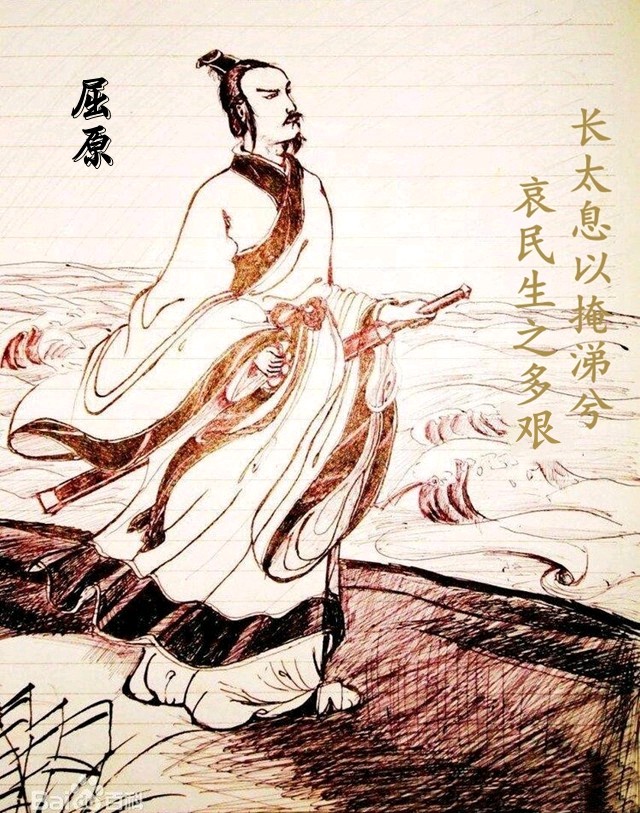 屈原
长太息以掩涕兮
哀民生之多艰
Bai百科